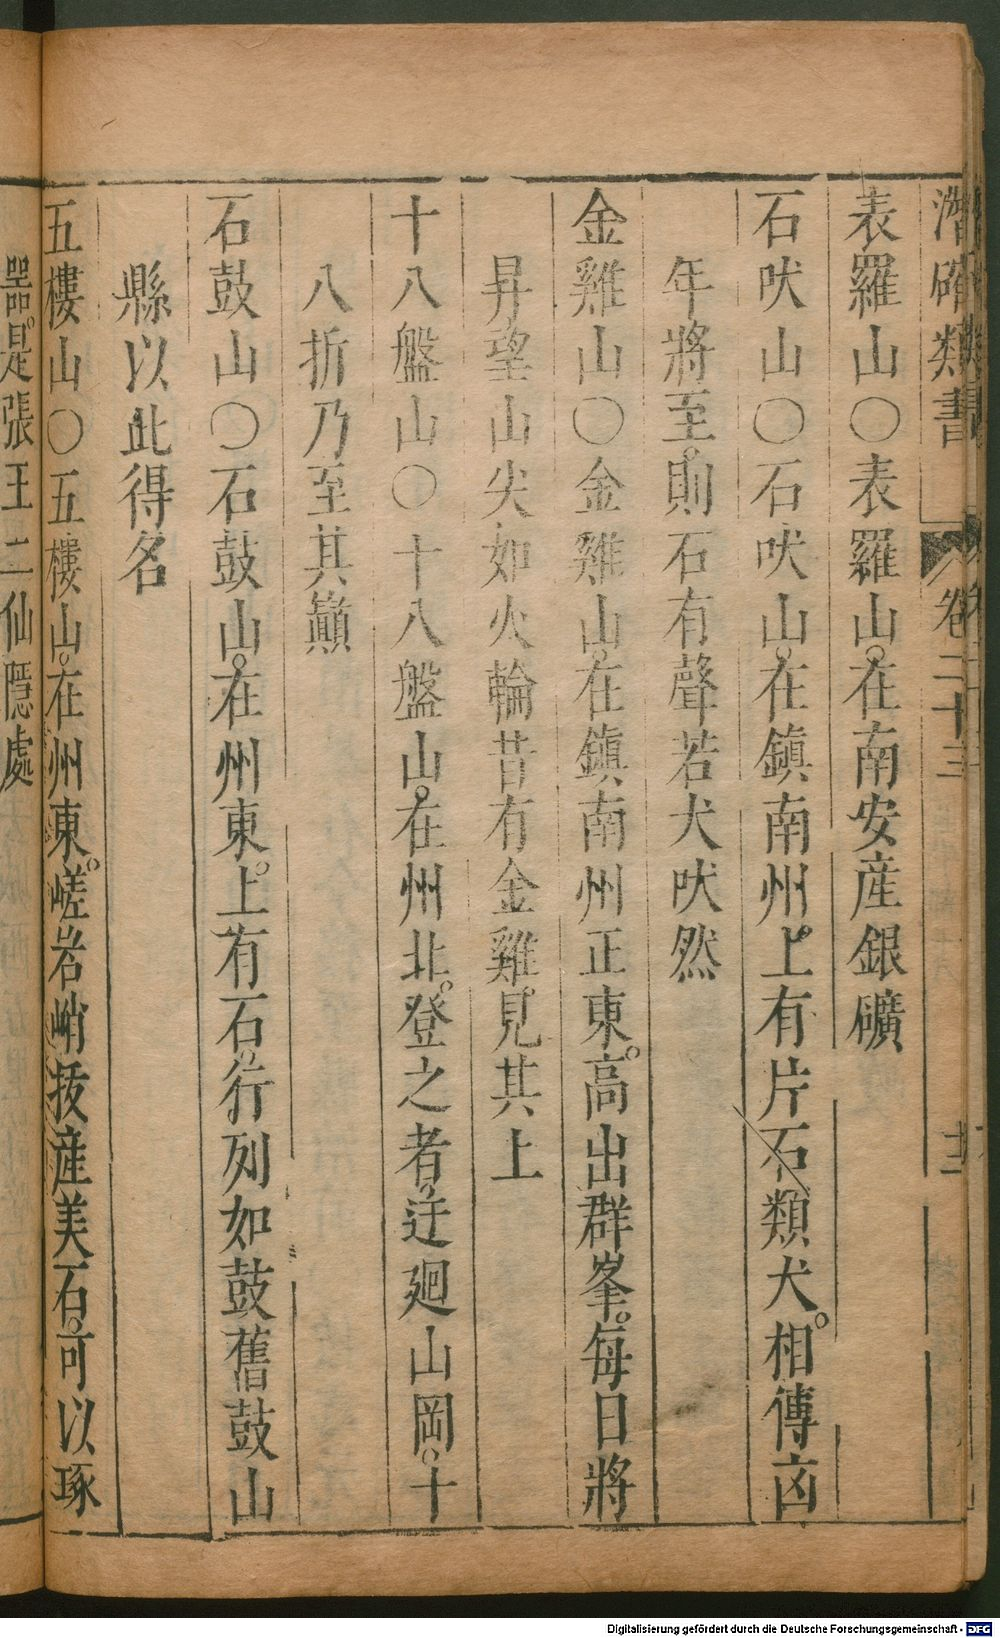 潛確類書 卷二十三 十二
表羅山○表羅山。在南安産銀礦
石吠山○石吠山。在鎮南州。上有片石類犬。相傳凶
年將至。則石有聲若犬吠然
金雞山○金雞山。在鎮南州正東。高出群峯。每日將
昇望山尖如火輪昔有金雞。見其上
十八盤山○十八盤山。在州北。登之者。迂廻山岡。十
八折乃至其巔
石鼓山○石鼓山。在州東。上有石。行列如鼓舊鼓山
縣以此得名
五樓山○五樓山。在州東。嵯岩峭拔産美石。可以琢
器。是張王二仙隱處
Digitalisierung gefördert durch die Deutsche Forschungsgemeinschaft - DFG